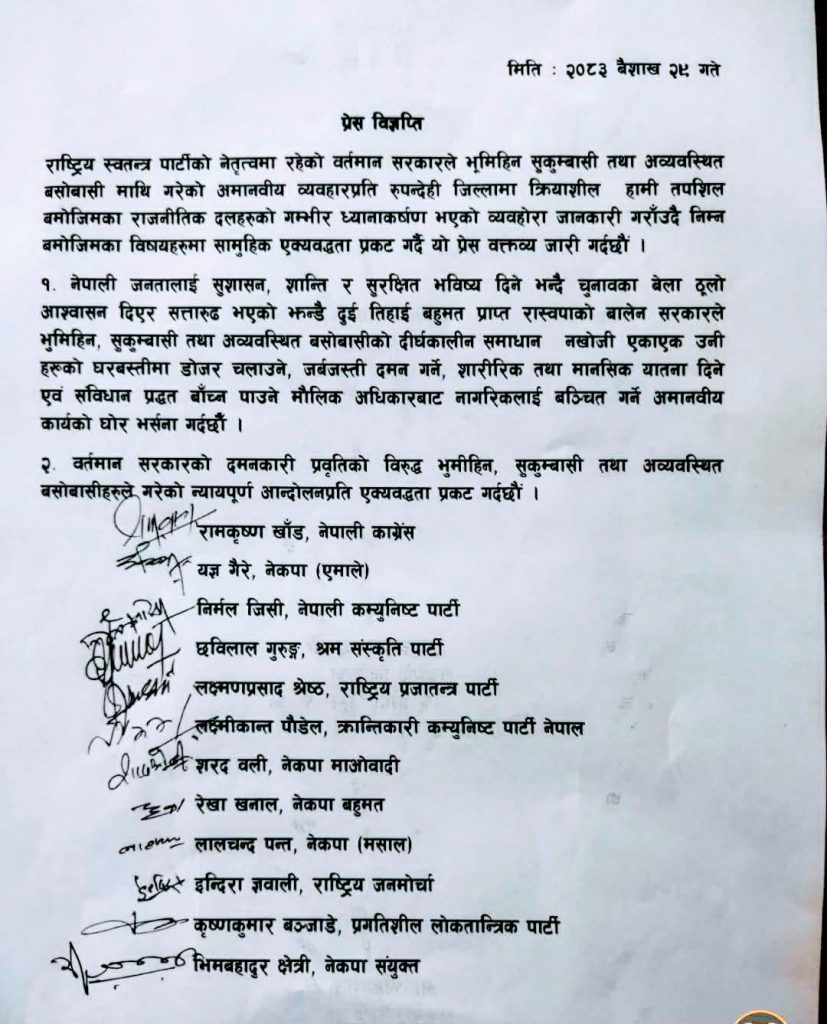 मिति : २०८३ बैशाख २९ गते
प्रेस विज्ञप्ति
राष्ट्रिय स्वतन्त्र पार्टीको नेतृत्वमा रहेको वर्तमान सरकारले भूमिहिन सुकुम्बासी तथा अव्यवस्थित
बसोबासी माथि गरेको अमानवीय व्यवहारप्रति रुपन्देही जिल्लामा क्रियाशील हामी तपशिल
बमोजिमका राजनीतिक दलहरुको गम्भीर ध्यानाकर्षण भएको व्यवहोरा जानकारी गराउँदै निम्न
बमोजिमका विषयहरुमा सामुहिक एक्यवद्धता प्रकट गर्दै यो प्रेस वक्तव्य जारी गर्दछौं ।
१. नेपाली जनतालाई सुशासन, शान्ति र सुरक्षित भविष्य दिने भन्दै चुनावका बेला ठूलो
आश्वासन दिएर सत्तारुढ भएको झन्डै दुई तिहाई बहुमत प्राप्त रास्वपाको बालेन सरकारले
भुमिहिन, सुकुम्बासी तथा अव्यवस्थित बसोबासीको दीर्घकालीन समाधान नखोजी एकाएक उनी
हरूको घरबस्तीमा डोजर चलाउने, जर्बजस्ती दमन गर्ने, शारीरिक तथा मानसिक यातना दिने
एवं संविधान प्रद्धत बाँच्न पाउने मौलिक अधिकारबाट नागरिकलाई बञ्चित गर्ने अमानवीय
कार्यको घोर भर्सना गर्दछौं ।
२. वर्तमान सरकारको दमनकारी प्रवृतिको विरुद्ध भुमीहिन, सुकुम्बासी तथा अव्यवस्थित
बसोबासीहरुले गरेको न्यायपूर्ण आन्दोलनप्रति एक्यवद्धता प्रकट गर्दछौं ।
रामकृष्ण खाँड, नेपाली काग्रेंस
यज्ञ गैरे, नेकपा (एमाले)
निर्मल जिसी, नेपाली कम्युनिष्ट पार्टी
छविलाल गुरुङ्ग, श्रम संस्कृति पार्टी
लक्ष्मणप्रसाद श्रेष्ठ, राष्ट्रिय प्रजातन्त्र पार्टी
लक्ष्मीकान्त पौडेल, क्रान्तिकारी कम्युनिष्ट पार्टी नेपाल
शरद वली, नेकपा माओवादी
रेखा खनाल, नेकपा बहुमत
लालचन्द पन्त, नेकपा (मसाल)
इन्दिरा ज्ञवाली, राष्ट्रिय जनमोर्चा
कृष्णकुमार बञ्जाडे, प्रगतिशील लोकतान्त्रिक पार्टी
भिमबहादुर क्षेत्री, नेकपा संयुक्त